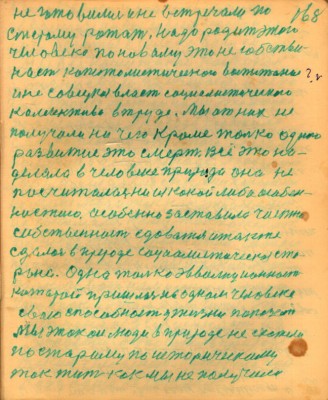 не готовили и не встречали по 168
старому рожат, надо родит этого
человека по новому это не собстви-
насть капиталистической воспитание ? г
и не совецка власт социалистического
коллектива в труде. Мы от них не
получали ни чего кроме толко одного
развитие это смерт. Всё это зо-
делала в человеке природа она не
посчиталася ни скокой либо особен-
ностию, особенно заставила частно
собственност сдоватся и также
сдался в природе социалистическая сто-
рона. Одна толко эволюционного
которой пришлая на одном человеке
свою способност в жизни показат
Мы этакои люди в природе не сколко
по старому по историческому
так жит как мы не получился